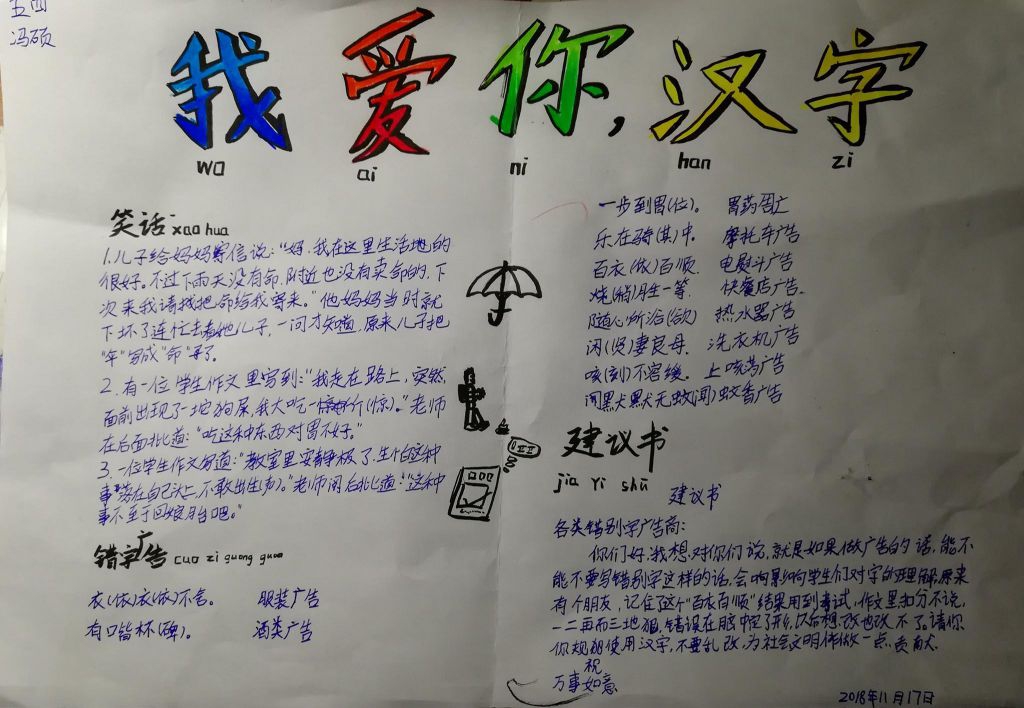 五四
冯硕
我爱你,汉字
wo ai ni han zi
笑话 xao hua
1.儿子给妈妈寄信说:"妈,我在这里生活地的
很好。不过下雨天没有命,附近也没有卖命的,下
次来我请找把命给我寄来。"他妈妈当时就
下坏了连忙去看她儿子,一问才知道,原来儿子把
"伞"写成"命"了。
2.有一位学生作文里写到:"我走在路上,突然,
面前出现了一坨狗屎,我大吃一斤(惊)。"老师
在后面批道:"吃这种东西对胃不好。"
3.一位学生作文写道:"教室里安静极了,生怕这种
事落在自己头上,不敢出生(声)。"老师阅后批道:"这种
事不至于回娘胎吧。"
错字广告 cuo zi guang guao
衣(依)衣(依)不舍。 服装广告
有口皆杯(碑)。 酒类广告
一步到胃(位)。 胃药广
乐在骑(其)中。 摩托车广告
百衣(依)百顺. 电熨斗广告
烧(稍)胜一等. 快餐店广告.
随心所浴(欲) 热水器广告
闲(贤)妻良母. 洗衣机广告
咳(刻)不容缓. 止咳药广告
闻(闻) 蚊香广告
建议书
jia Yi shū
建议书
各类错别字广告商:
你们好,我想对你们说,就是如果做广告的话,能不
能不要写错别字这样的话,会响影响学生们对字的理解,原来
有个朋友,记住了这个"百衣百顺"结果用到考试,作文里扣分不说,
一二再而三地犯,错误在脑中,以后想改也改不了,请你
你规范使用汉字,不要乱改,为社会文明作做一点贡献.
祝
万事如意
2018年11月17日